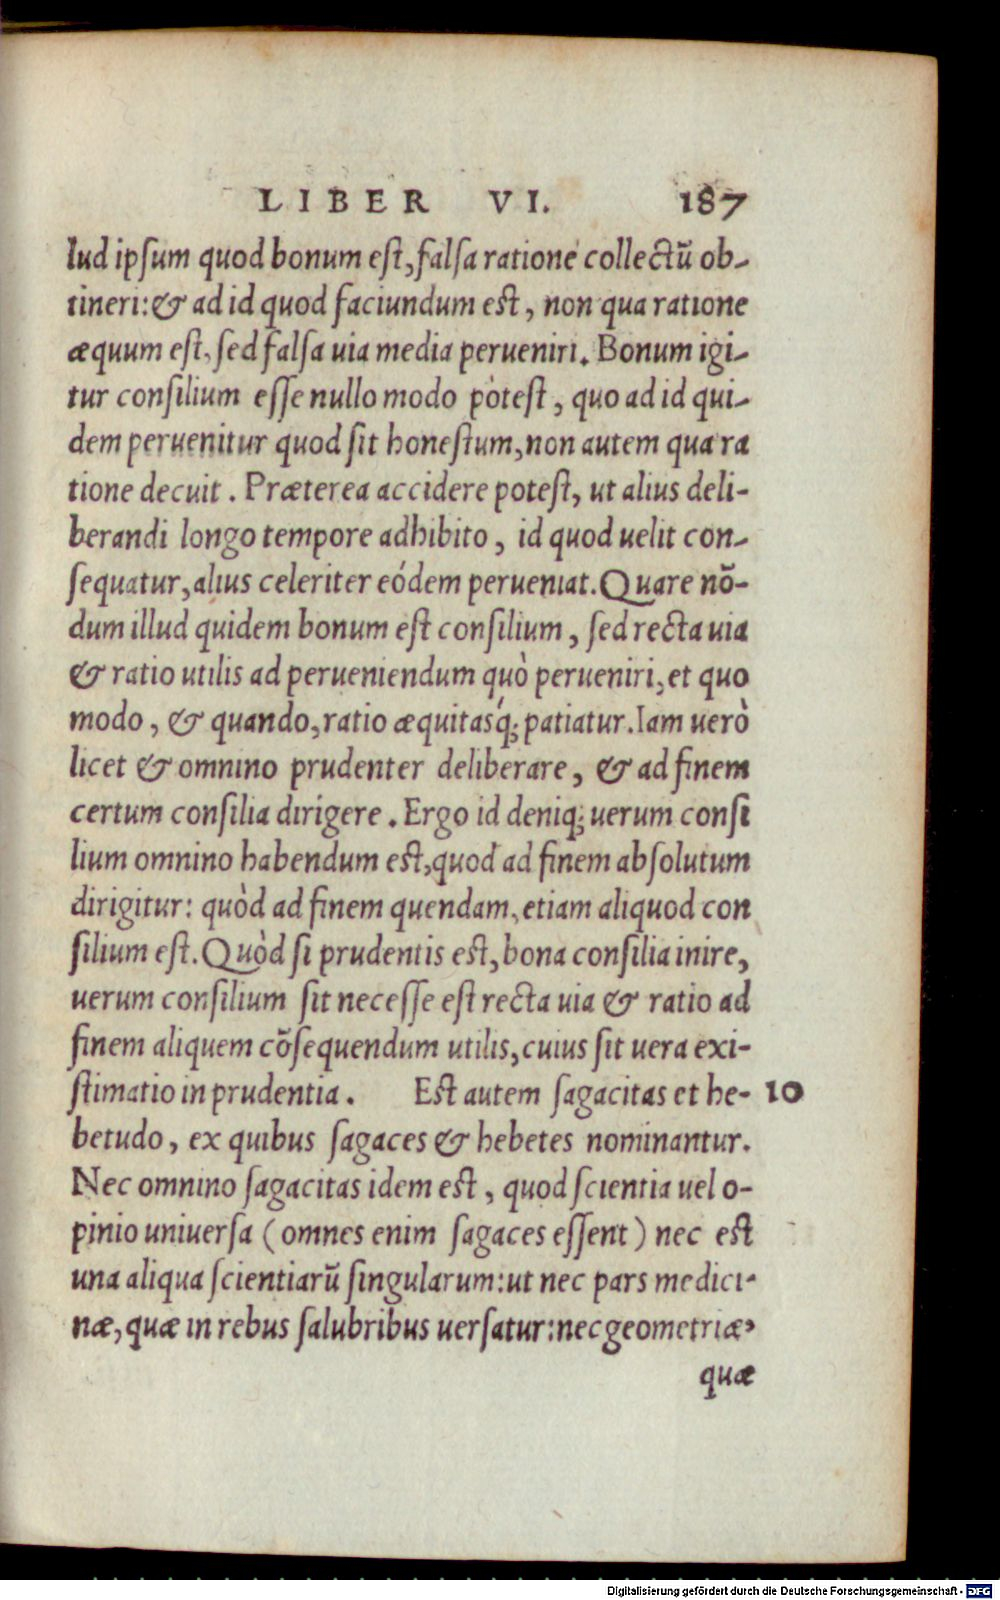 LIBER VI. 187
lud ipſum quod bonum eſt, falſa ratione collectū ob-
tineri: & ad id quod faciundum eſt, non qua ratione
æquum eſt, ſed falſa uia media perueniri. Bonum igi-
tur conſilium eſſe nullo modo poteſt, quo ad id qui-
dem peruenitur quod ſit honeſtum, non autem qua ra
tione decuit. Præterea accidere poteſt, ut alius deli-
berandi longo tempore adhibito, id quod uelit con-
ſequatur, alius celeriter eódem perueniat. Quare nō-
dum illud quidem bonum eſt conſilium, ſed recta uia
& ratio utilis ad perueniendum quò perueniri, et quo
modo, & quando, ratio æquitasq́; patiatur. Iam uerò
licet & omnino prudenter deliberare, & ad finem
certum conſilia dirigere. Ergo id deniq; uerum conſi
lium omnino habendum eſt, quod ad finem abſolutum
dirigitur: quòd ad finem quendam, etiam aliquod con
ſilium eſt. Quòd ſi prudentis eſt, bona conſilia inire,
uerum conſilium ſit neceſſe eſt recta uia & ratio ad
finem aliquem cōſequendum utilis, cuius ſit uera exi-
ſtimatio in prudentia. Eſt autem ſagacitas et he- 10
betudo, ex quibus ſagaces & hebetes nominantur.
Nec omnino ſagacitas idem eſt, quod ſcientia uel o-
pinio uniuerſa (omnes enim ſagaces eſſent) nec eſt
una aliqua ſcientiarū ſingularum: ut nec pars medici-
næ, quæ in rebus ſalubribus uerſatur: nec geometriæ,
quæ
Digitalisierung gefördert durch die Deutsche Forschungsgemeinschaft - DFG